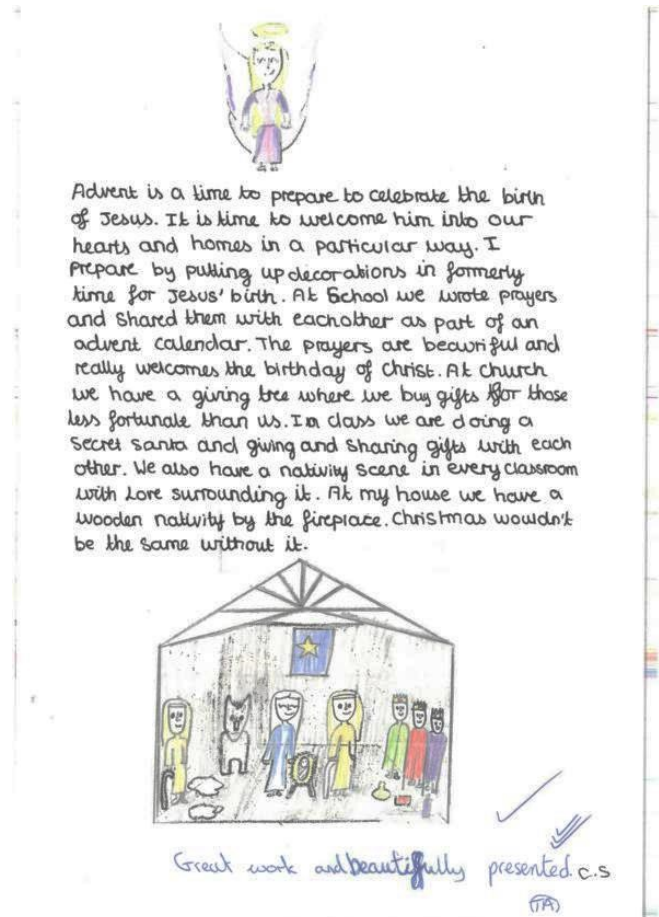 Advent is a time to prepare to celebrate the birth
of Jesus. It is time to welcome him into our
hearts and homes in a particular way. I
prepare by putting up decorations in formerly
time for Jesus' birth. At School we wrote prayers
and Shared them with eachother as part of an
advent calendar. The prayers are beauriful and
really welcomes the birthday of Christ. At church
we have a giving tree where we buy gifts for those
less fortunate than us. In class we are doing a
Secret Santa and giving and Sharing gifts with each
other. We also have a nativity Scene in every classroom
with Love surrounding it. At my house we have a
wooden nativity by the fireplace. Christmas wouldn't
be the Same without it.
Great work and beautifully presented. C.S
TA